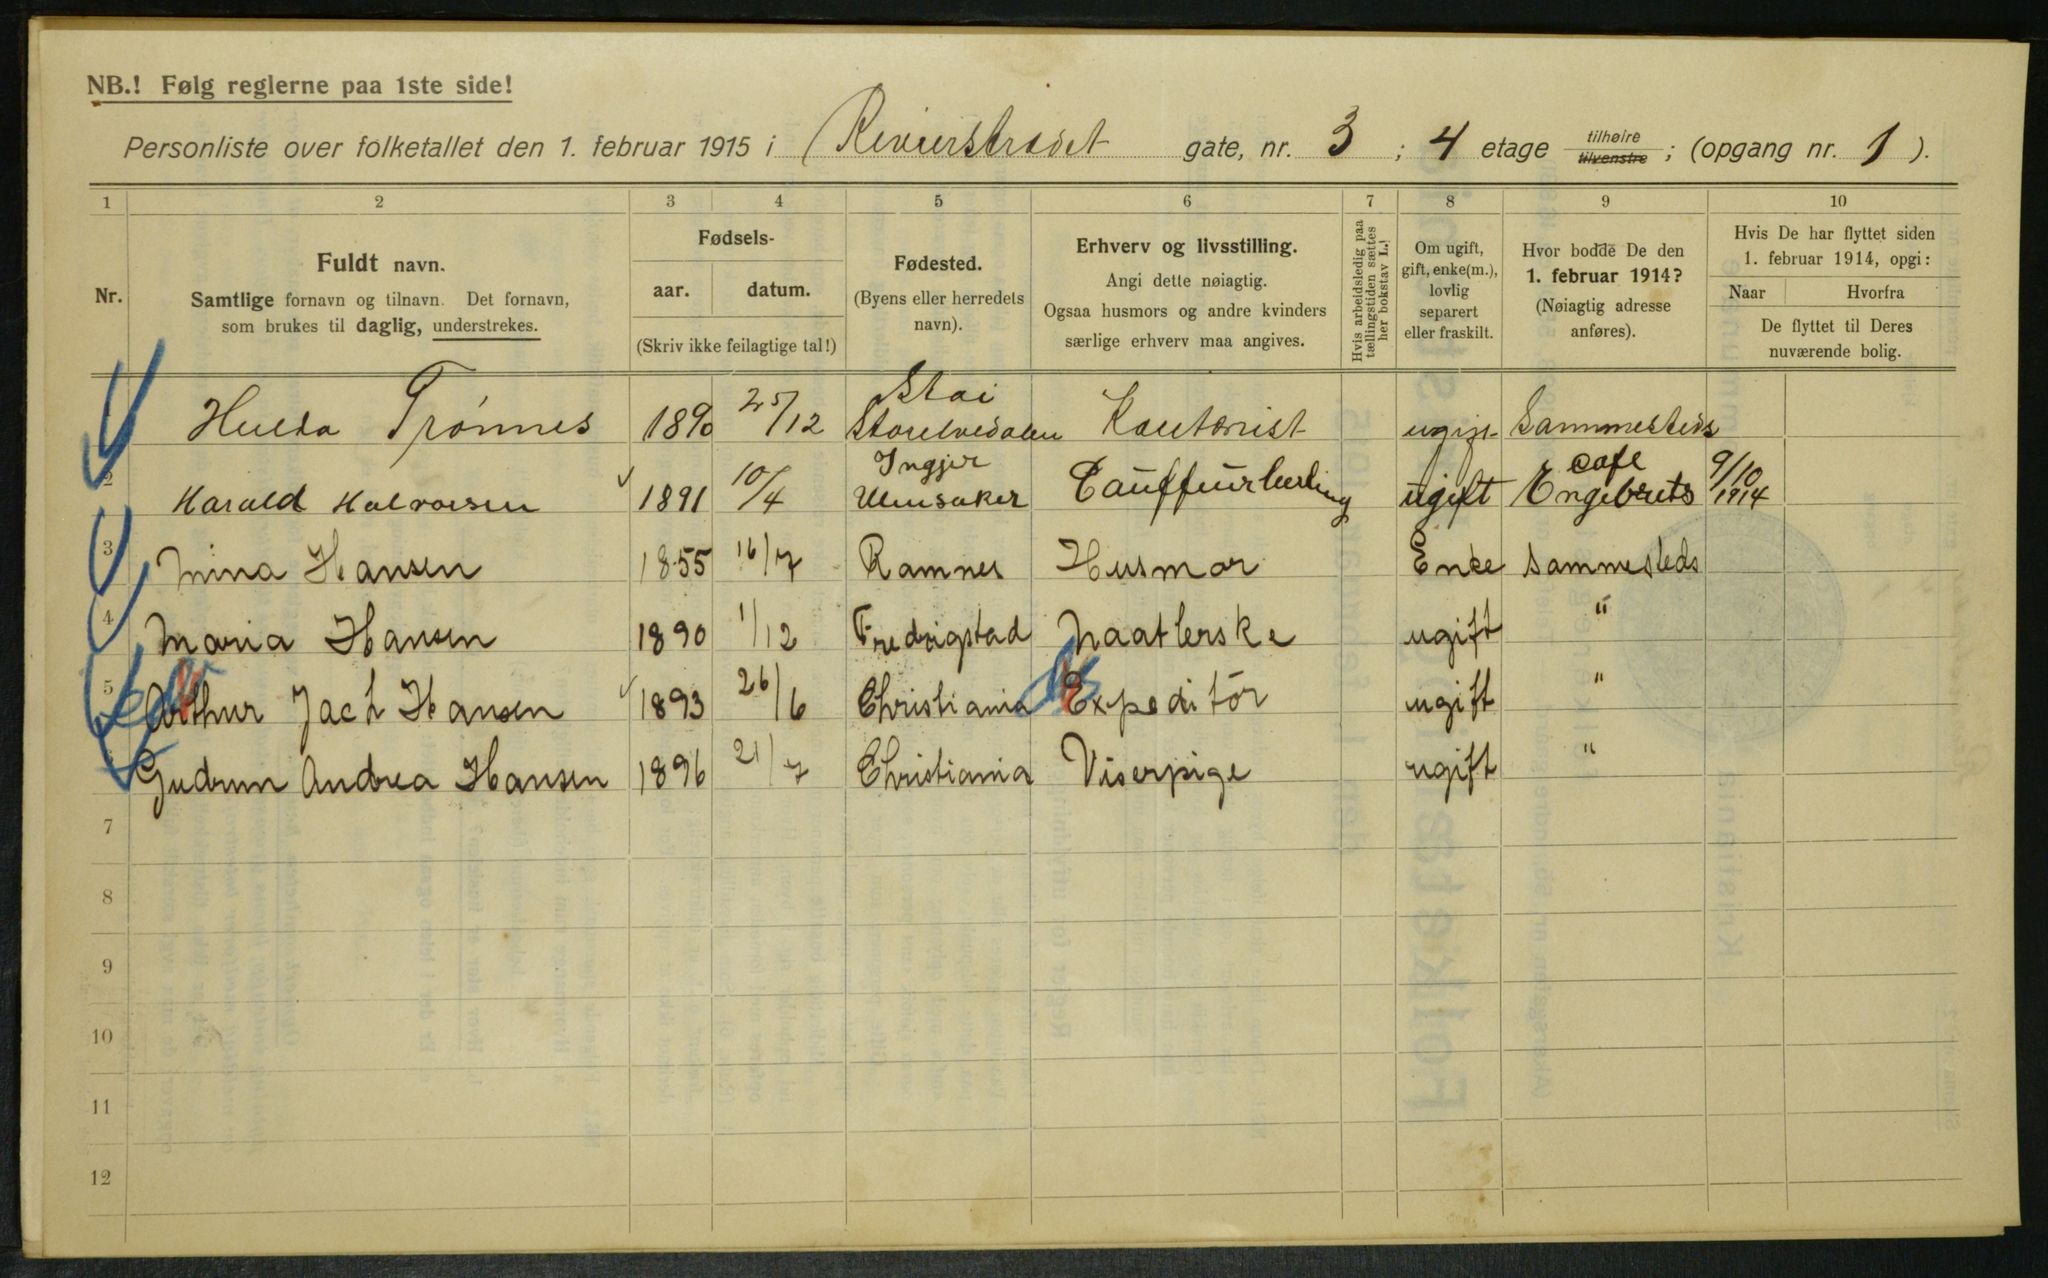 NB.! Følg reglerne paa 1ste side!
Personliste over folketallet den 1. februar 1915 i Revierstrædet gate, nr. 3 ; 4 etage tilhøire tilvenstre ; (opgang nr. 1 ).
1 2 3 4 5 6 7 8 9 10
Nr.
Fuldt navn.
Samtlige fornavn og tilnavn. Det fornavn,
som brukes til daglig, understrekes.
Fødsels-
aar. datum.
(Skriv ikke feilagtige tal!)
Fødested.
(Byens eller herredets
navn).
Erhverv og livsstilling.
Angi dette nøiagtig.
Ogsaa husmors og andre kvinders
særlige erhverv maa angives.
Hvis arbeidsledig paa
tællingstiden sættes
her bokstav L.!
Om ugift,
gift, enke(m.),
lovlig
separert
eller fraskilt.
Hvor bodde De den
1. februar 1914?
(Nøiagtig adresse
anføres).
Hvis De har flyttet siden
1. februar 1914, opgi:
Naar Hvorfra
De flyttet til Deres
nuværende bolig.
Stai
Hulda Trønnes 1890 25/12 Storelvedalen Kontorist ugift Sammesteds
Ingjer cafe
2 Harald Halvorsen 1891 10/4 Ullensaker Cauffeurlerling ugift Engebrets 9/10 1914
3 Mina Hansen 1855 16/7 Ramnes Husmor Enke Sammesteds
4 Maria Hansen 1890 1/12 Fredrigstad Naatlerske ugift "
5 Arthur Jach Hansen 1893 26/6 Christiania Expeditör ugift "
Gudrun Andrea Hansen 1896 21/7 Christiania Viserpige ugift "
7
8
9
10
11
12